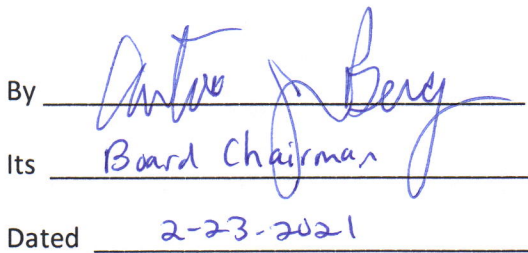 By Anton J Berg
Its Board Chairman
Dated 2-23-2021